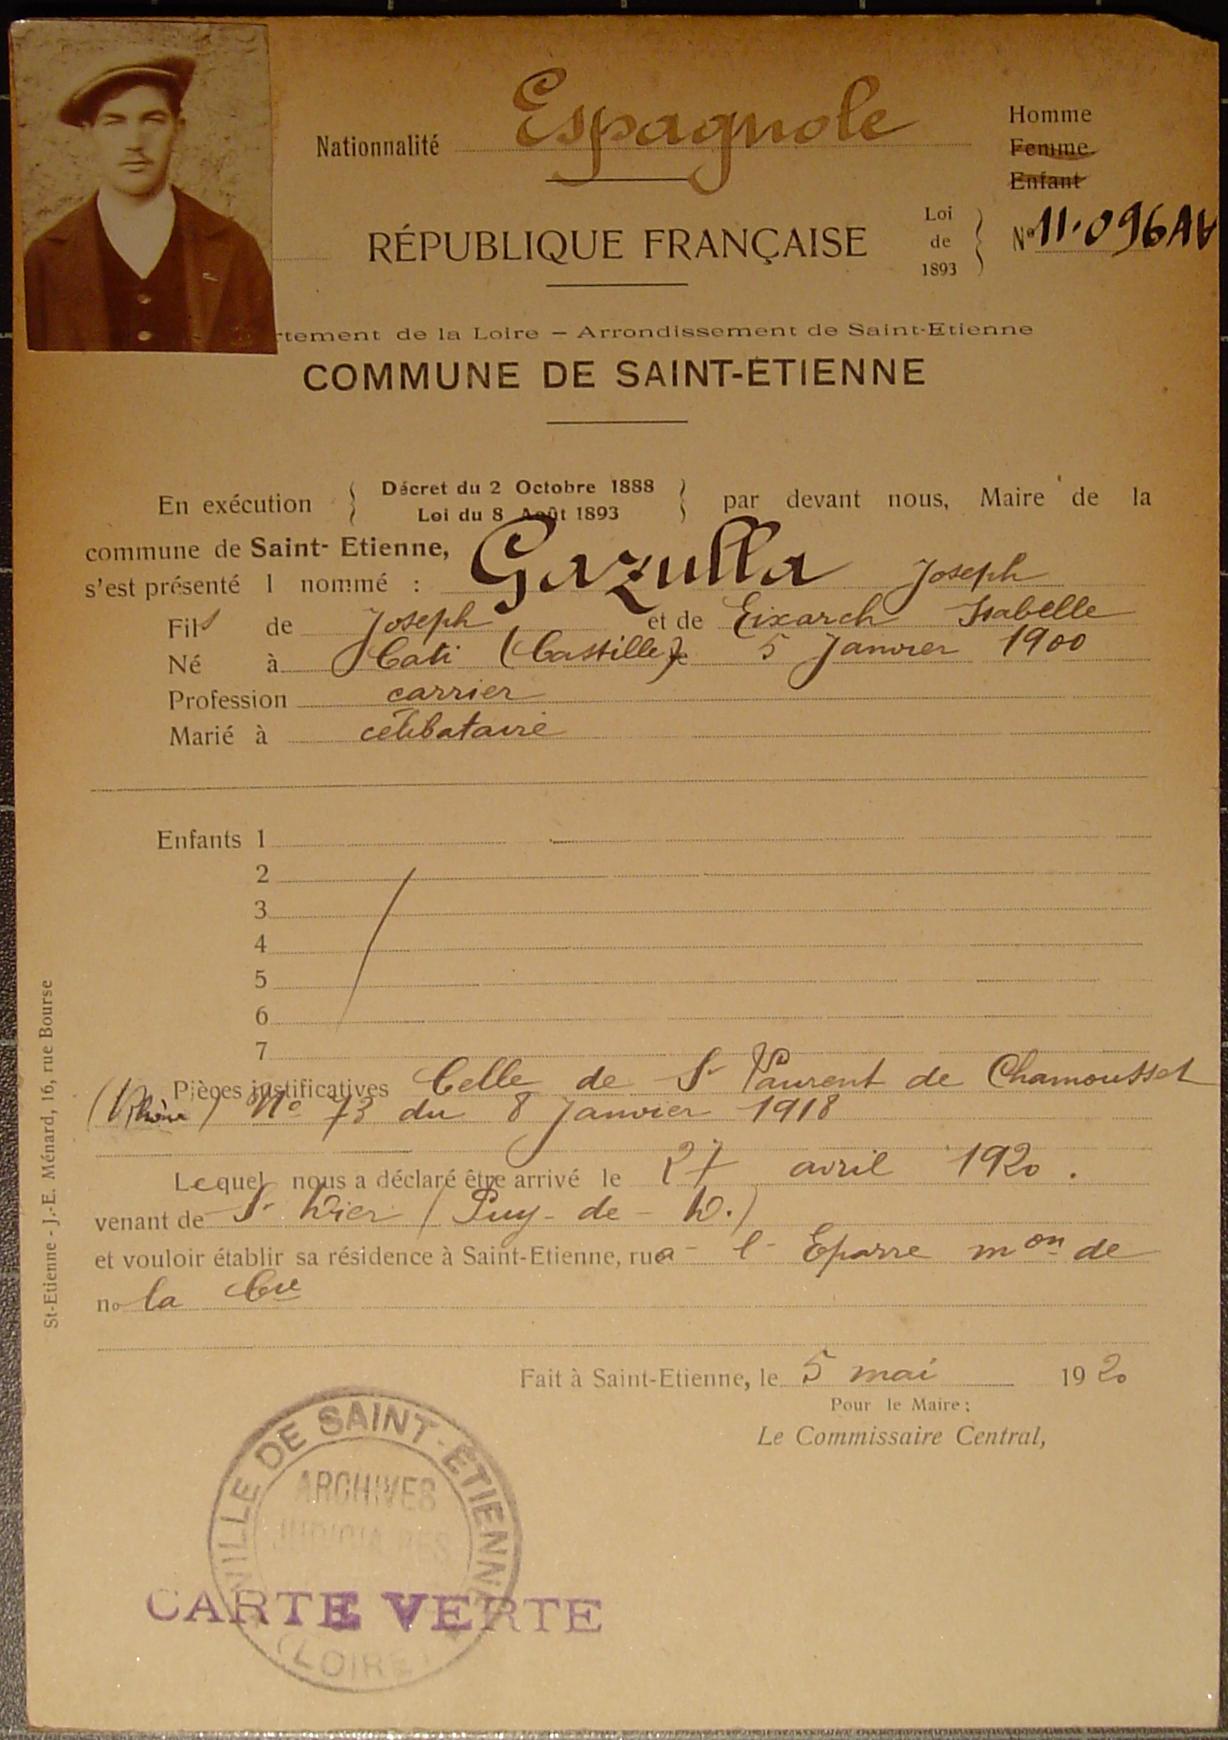 Nationnalité Espagnole
Homme
Femme
Enfant
RÉPUBLIQUE FRANÇAISE
Loi
de
1893
No 11.096 AV
rtement de la Loire - Arrondissement de Saint-Etienne
COMMUNE DE SAINT-ÉTIENNE
En exécution { Décret du 2 Octobre 1888 Loi du 8 Août 1893 } par devant nous, Maire de la
commune de Saint-Etienne,
s'est présenté l nommé : Gazulla Joseph
Fils de Joseph et de Eixarch Isabelle
Né à Cati (Castille) le 5 Janvier 1900
Profession carrier
Marié à célibataire
Enfants 1
2
3
4
5
6
7
Pièces justificatives Celle de St Laurent de Chamousset
(Rhône) No 73 du 8 Janvier 1918
Lequel nous a déclaré être arrivé le 27 avril 1920.
venant de St Dier (Puy-de-D.)
et vouloir établir sa résidence à Saint-Etienne, rue à l'Eparre mon de
no la Cie
Fait à Saint-Etienne, le 5 mai 1920
Pour le Maire :
Le Commissaire Central,
VILLE DE SAINT-ÉTIENNE
ARCHIVES
JUDICIAIRES
(LOIRE)
CARTE VERTE
St-Etienne - J.-E. Ménard, 16, rue Bourse